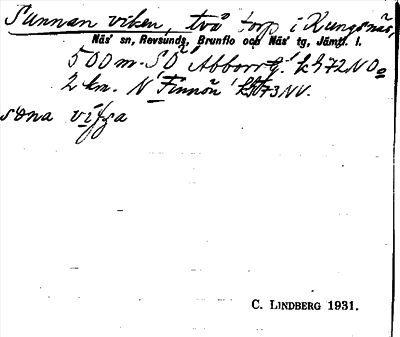 Sunnan viken, två torp i Kungsnäs,
Näs' sn, Revsunds, Brunflo och Näs' tg, Jämtl. l.
500 m. SO Abborrtj. kh 72 NO o
2 km. N Finnön kh 73 NV.
söna vifza
C. LINDBERG 1931.